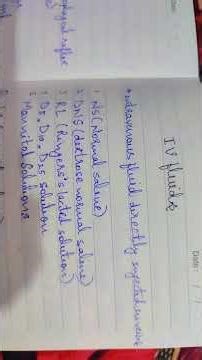 Date: / /
IV fluids
• intravenous fluid directly injected in vein
1. NS (Normal saline)
2. DNS (dextrose normal saline)
3. RL (Ringer's lactate solution)
4. D5, D10, D25 solution
5. Mannitol Solutions